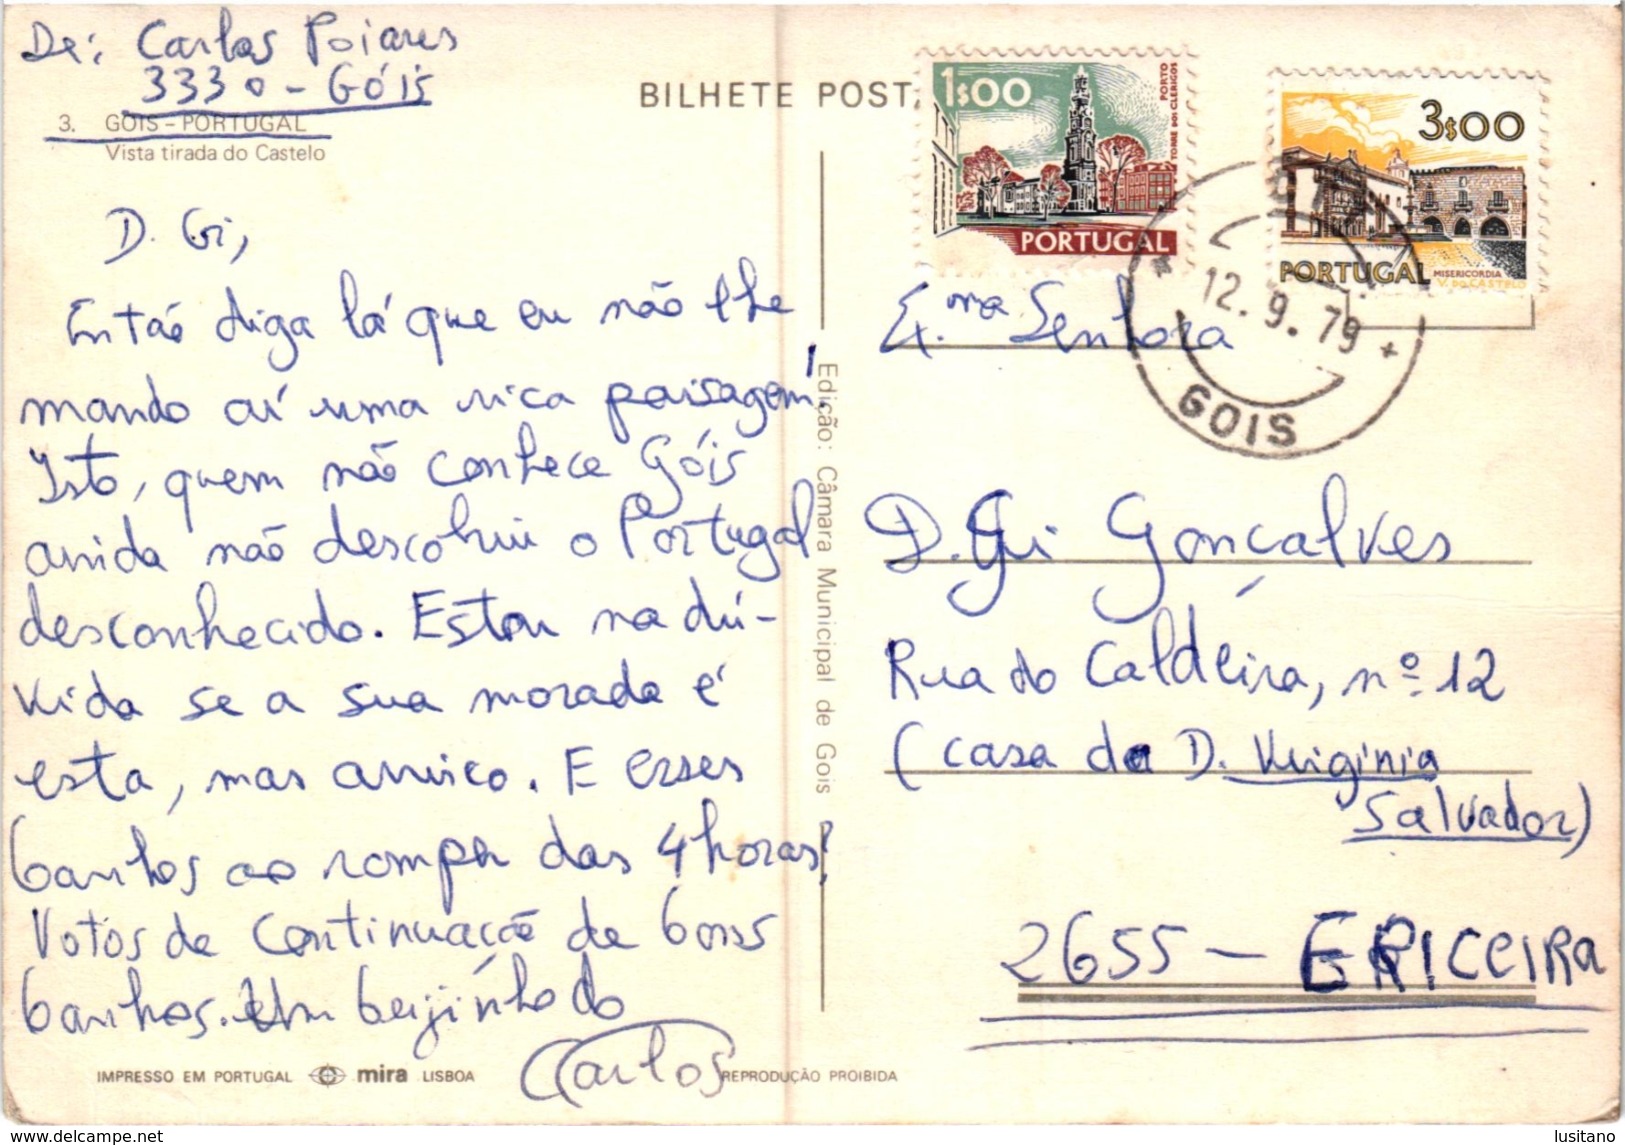 De: Carlos Poiares
3330 - Góis
3. GOIS - PORTUGAL
Vista tirada do Castelo
D. Gi,
Então diga lá que eu não lhe
mando aí uma rica paisagem!
Isto, quem não conhece Góis
ainda não descobriu o Portugal
desconhecido. Estou na dú-
vida se a sua morada é
esta, mas arrisco. E esses
banhos ao romper das 4 horas?
Votos de continuação de bons
banhos. Um beijinho do
Carlos
IMPRESSO EM PORTUGAL mira LISBOA
REPRODUÇÃO PROIBIDA
Edição: Câmara Municipal de Gois
BILHETE POSTA
1$00
PORTO
TORRE DOS CLÉRIGOS
PORTUGAL
3$00
PORTUGAL
MISERICORDIA
V. DO CASTELO
12.9.79
GOIS
Ex.ma Senhora
D. Gi Gonçalves
Rua do Caldeira, nº 12
(casa da D. Virgínia
Salvador)
2655 - ERICEIRA
www.delcampe.net
lusitano